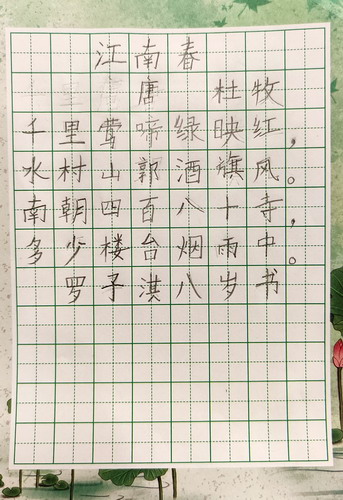 江南春
唐 杜牧
千里莺啼绿映红，
水村山郭酒旗风。
南朝四百八十寺，
多少楼台烟雨中。
罗子淇八岁书